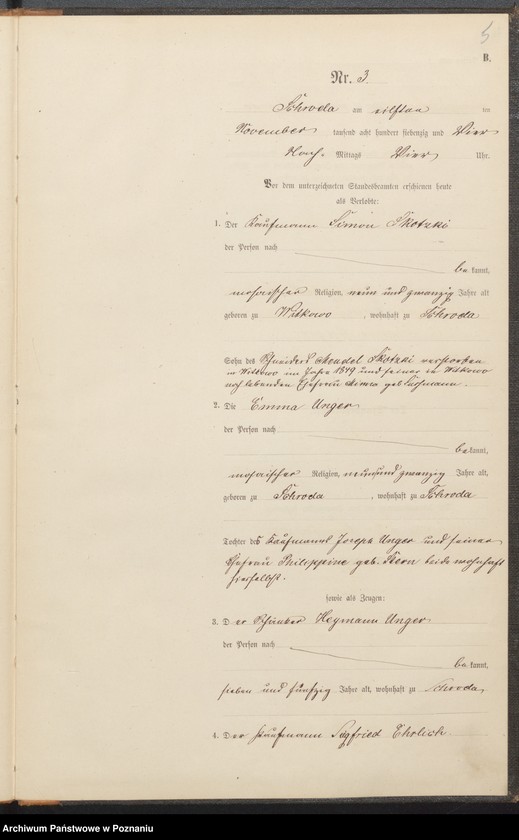 5
B.
Nr. 3.
Schroda am eilften
November tausend acht hundert siebenzig und Vier
Nach- Mittags Vier Uhr.
Vor dem unterzeichneten Standesbeamten erschienen heute
als Verlobte:
1. Der Kaufmann Simon Skotzki
der Person nach
be kannt,
mosaischer Religion, neun und zwanzig Jahre alt
geboren zu Witkowo, wohnhaft zu Schroda
Sohn des Schneiders Mendel Skotzki verstorben
in Witkowo im Jahre 1849 und seiner in Witkowo
noch lebenden Ehefrau geb.
2. Die Emma Unger
der Person nach
be kannt,
mosaischer Religion, neunundzwanzig Jahre alt,
geboren zu Schroda, wohnhaft zu Schroda
Tochter des Kaufmanns Joseph Unger und seiner
Ehefrau Philippine geb. Kern beide wohnhaft
hierselbst.
sowie als Zeugen:
3. Der Heymann Unger
der Person nach
be kannt,
sieben und fünfzig Jahre alt, wohnhaft zu Schroda,
4. Der Kaufmann Sigfried Ehrlich
Archiwum Państwowe w Poznaniu